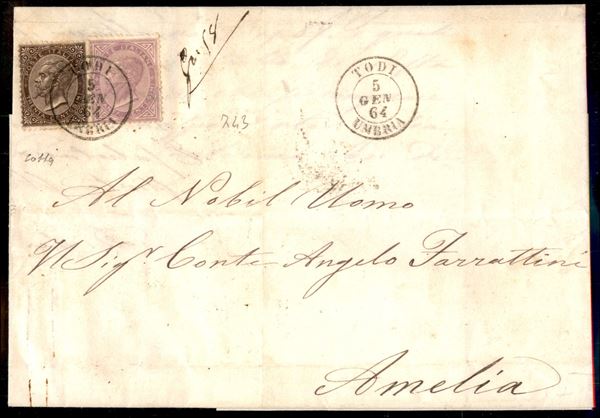 TODI
5
GEN
64
UMBRIA
TODI
5
GEN
64
UMBRIA
Al Nobil Uomo
Il Sigr Conte Angelo Farrattini
Amelia